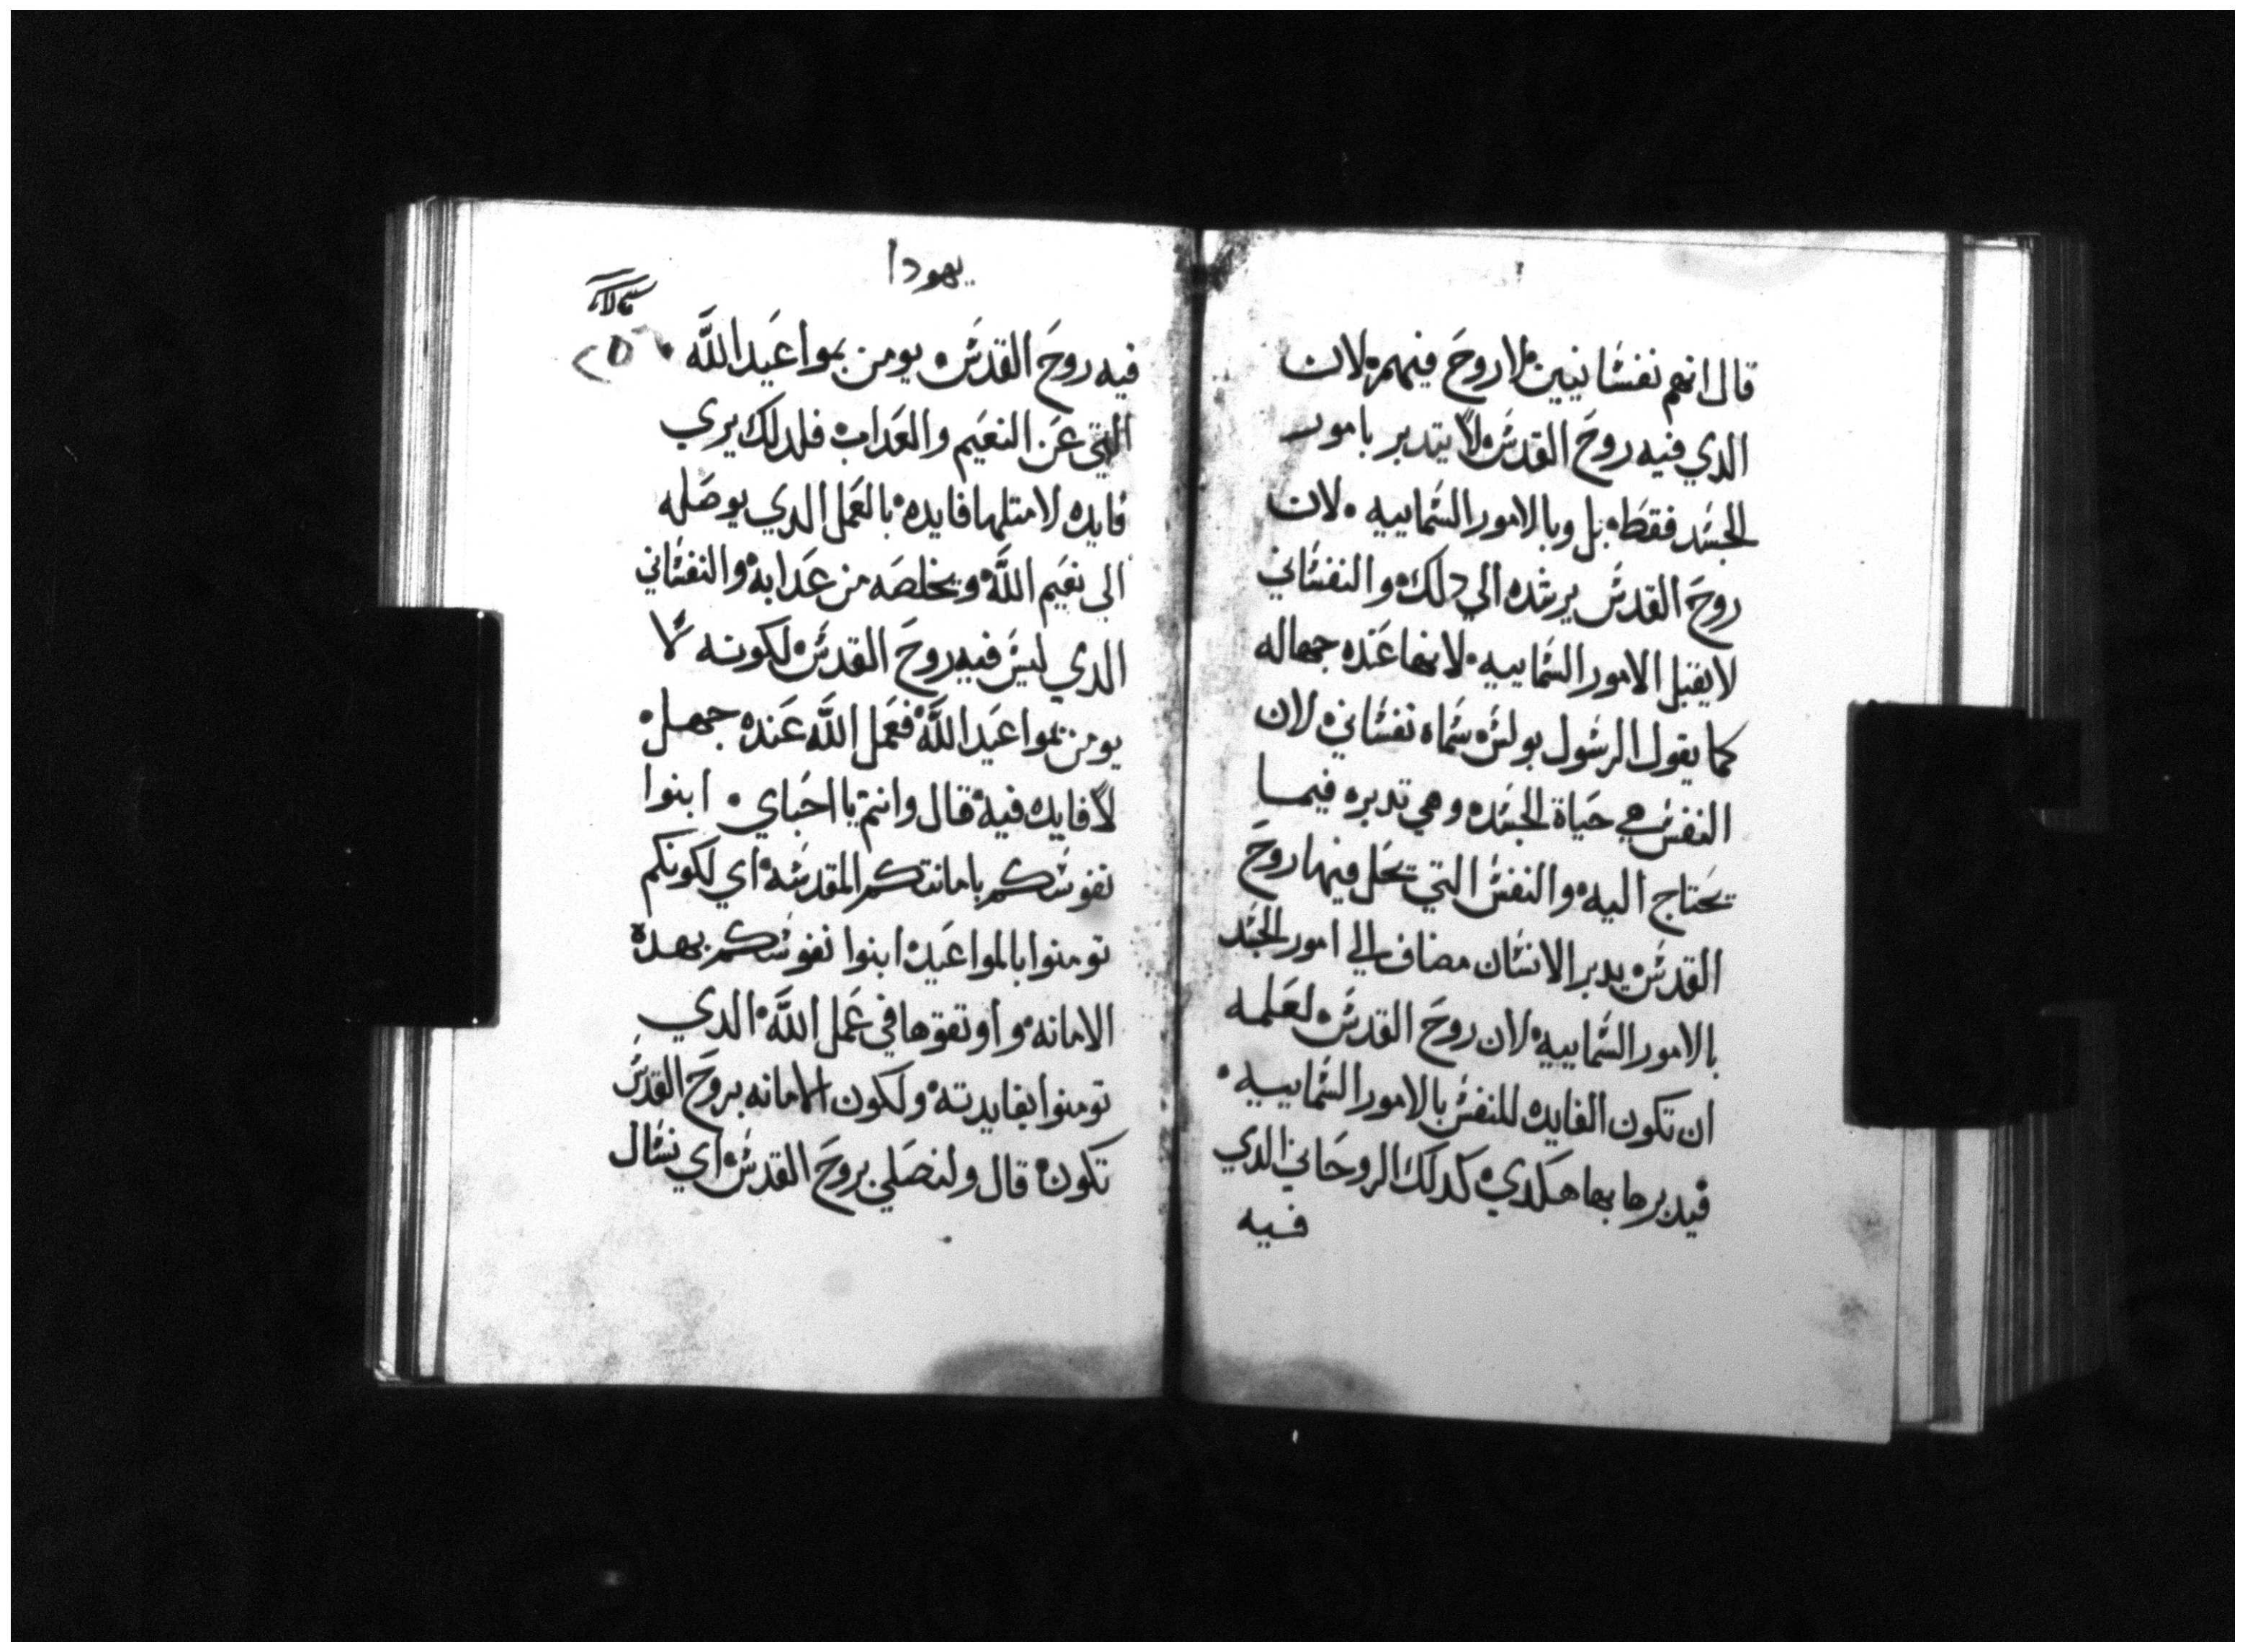 قال انهم نفسانيين لا روح فيهم لان
الدي فيه روح القدس لا يتدبر بامور
الجسد فقط بل وبالامور السماييه لان
روح القدس يرشده الي دلك والنفساني
لا يقبل الامور السماييه لانها عنده جهاله
كما يقول الرسول بولس سماه نفساني لان
النفس هي حياة الجسد وهي تدبره فيما
يحتاج اليه والنفس التي يحل فيها روح
القدس يدبر الانسان مضاف الي امور الجسد
بالامور السماييه لان روح القدس لعلمه
ان تكون الفايده للنفس بالامور السماييه
فيدبرها بها هكدي كدلك الروحاني الدي
فيه
يهودا
فيه روح القدس يومن بمواعيد الله
التي عن النعيم والعداب فلدلك يري
فايده لا متلها فايده بالعمل الدي يوصله
الي نعيم الله ويخلصه من عدابه والنفساني
الدي ليس فيه روح القدس لكونه لا
يومن بمواعيد الله فعمل الله عنده جهل
لا فايده فيه قال وانتم يا احباي ابنوا
نفوسكم بامانتكم المقدسه اي لكونكم
تومنوا بالمواعيد ابنوا نفوسكم بهده
الامانه واوتقوها في عمل الله الدي
تومنوا بفايدته ولكون الامانه بروح القدس
تكون قال ولنصلي بروح القدس اي نسال